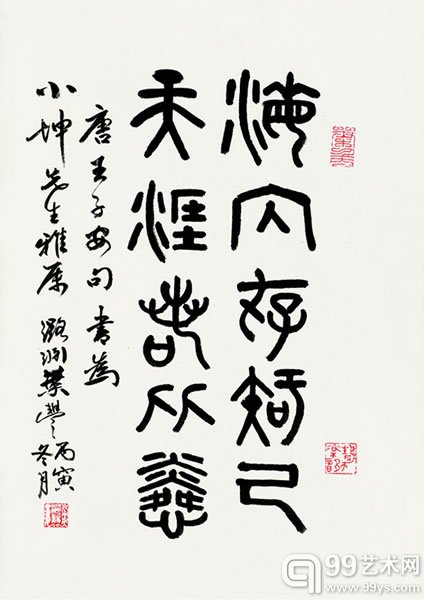 海内存知己
天涯若比鄰
唐王子安句 書為
小坤先生雅屬 潞渊葉豐 丙寅
冬月
99艺术网
www.99ys.com